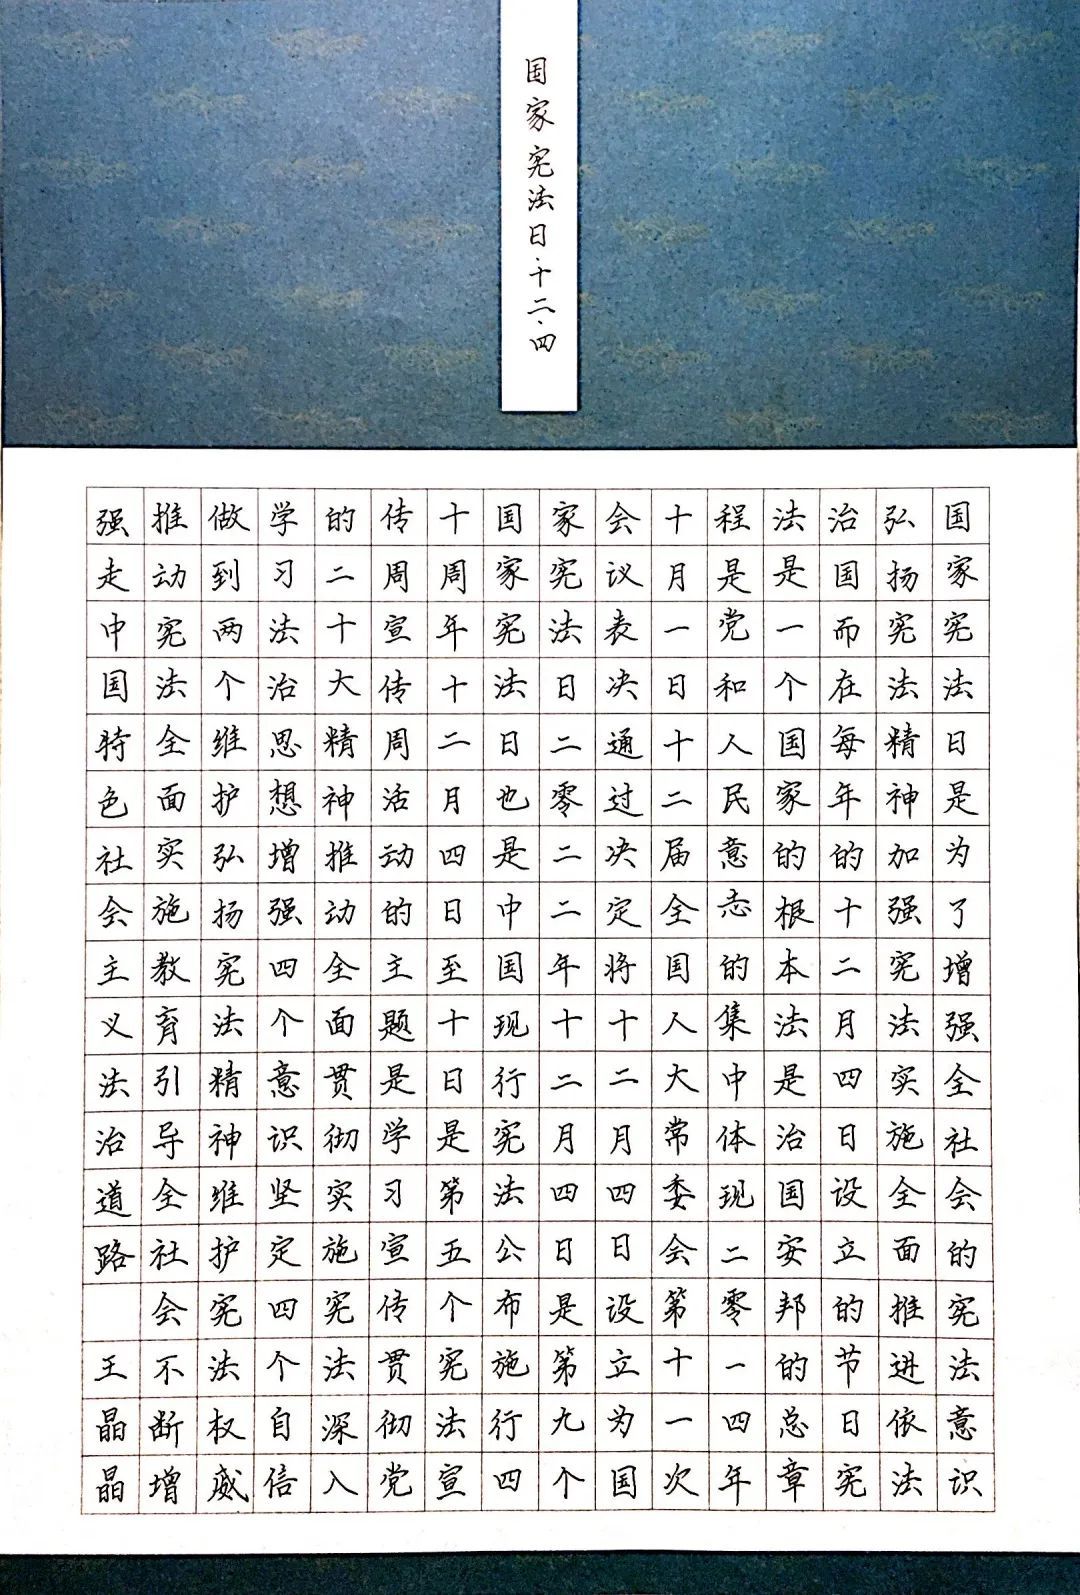 国家宪法日·十二·四
国家宪法日是为了增强全社会的宪法意识
弘扬宪法精神加强宪法实施全面推进依法
治国而在每年的十二月四日设立的节日宪
法是一个国家的根本法是治国安邦的总章
程是党和人民意志的集中体现二零一四年
十月一日十二届全国人大常委会第十一次
会议表决通过决定将十二月四日设立为国
家宪法日二零二二年十二月四日是第九个
国家宪法日也是中国现行宪法公布施行四
十周年十二月四日至十日是第五个宪法宣
传周宣传周活动的主题是学习宣传贯彻党
的二十大精神推动全面贯彻实施宪法深入
学习法治思想增强四个意识坚定四个自信
做到两个维护弘扬宪法精神维护宪法权威
推动宪法全面实施教育引导全社会不断增
强走中国特色社会主义法治道路 王晶晶